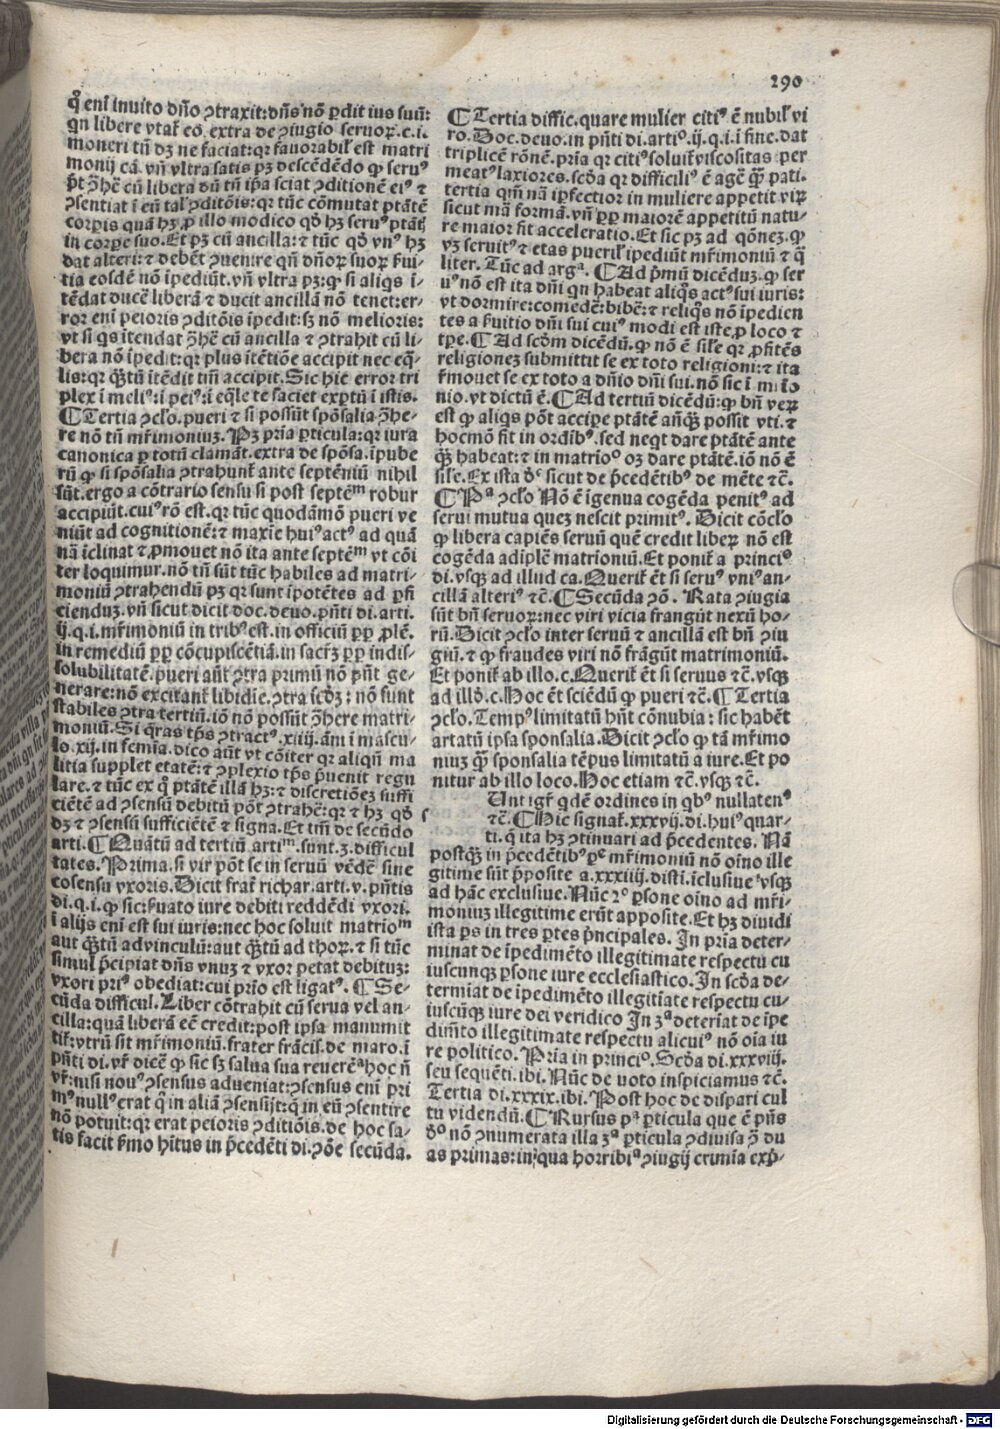 290
qͥ eni inuito dño ꝯtraxit: dñs nõ ꝑdit ius suũ:
qn libere vtaꝉ eo. extra de ꝯiugio seruoꝝ. c. i.
moneri tñ dꝫ ne faciat: qꝛ fauorabiꝉ est matri
monij cã. vñ vltra satis pꝫ descẽdẽdo ꝙ seruꝰ
cũ libera dũ tñ ip̃a sciat ꝯditionẽ eiꝰ ⁊
ꝯsentiat ĩ eũ taꝉ ꝯditõis: qꝛ tũc cõmutat ptãtẽ
corꝑis quã hꝫ ꝓ illo modico qð hꝫ seruꝰ
in corꝑe suo. Et pꝫ cũ ancilla: ⁊ tũc qð vnꝰ hꝫ
dat alteri: ⁊ debẽt ꝯuenire qñ dñoꝝ suoꝝ ẜui/
tia eosdẽ nõ ĩpediũt. vñ vltra pꝫ: ꝙ si aliꝗs ĩ/
tẽdat ducẽ liberã ⁊ ducit ancillã nõ tenet: er/
ror eni peioris ꝯditõis ĩpedit: sꝫ nõ melioris:
vt si ꝗs ĩtendat cũ ancilla ⁊ ꝯtrahit cũ li/
bera nõ ĩpedit: qꝛ plus ĩtẽtiõe accipit nec eq̃/
lis: qꝛ q̃ꝫtũ ĩtẽdit tñ accipit. Sic hic error tri
plex ĩ meliꝰ: ĩ peiꝰ: ĩ eq̃le te faciet exꝑtũ ĩ istis.
¶ Tertia ꝯclo. pueri ⁊ si possũt spõsalia ꝯ̃he/
re nõ tñ mr̃imoniuꝫ. Pꝫ pria ꝑticula: qꝛ iura
canonica ꝑ totũ clamãt. extra de spõsa. ĩpube
rũ ꝙ si spõsalia ꝯtrahunt̃ ante septẽniũ nihil
sũt. ergo a cõtrario sensu si post septẽᵐ robur
accipiũt. cuiꝰ rõ est. qꝛ tũc quodãmõ pueri ve
niũt ad cognitionẽ: ⁊ maxĩe huiꝰ actꝰ ad quã
nã ĩclinat ⁊ ꝓmouet nõ ita ante septẽᵐ vt cõi
ter loquimur. nõ tñ sũt tũc habiles ad matri/
moniũ ꝯtrahendũ pꝫ qꝛ sunt ĩpotẽtes ad ꝑfi
ciendũ. vñ sicut dicit doc. deuo. pñti di. arti.
ij. q. i. mr̃imoniũ in tribꝰ est. in officiũ ꝓp ꝓlẽ.
in remediũ ꝓp cõcupiscẽtiã. in sacr̃ꝫ ꝓp indis/
solubilitatẽ. pueri aũt ꝯtra primũ nõ pñt ge/
nerare: nõ excitant̃ libidie. ꝯtra sc̃dꝫ; nõ sunt
stabiles ꝯtra tertiũ. iõ nõ possũt ꝯ̃here matri/
moniũ. Si ꝗras tp̃s ꝯtractꝰ. xiiij. ãm ĩ mascu/
lo. xij. in femia. dico aũt vt cõiter qꝛ aliqñ ma
litia supplet etatẽ: ⁊ ꝯplexio tp̃s p̃uenit regu
lare. ⁊ tũc ex q̊ ptãtẽ illã hꝫ: ⁊ discretiõeꝫ suffi
ciẽtẽ ad ꝯsensũ debitũ põt ꝯtrahẽ: qꝛ ⁊ hꝫ qð
dꝫ ⁊ ꝯsensũ sufficiẽtẽ ⁊ signa. Et tm̃ de secũdo
arti. ¶ Quãtũ ad tertiũ artiᵐ. sunt. 3. difficul
tates. Prima. si vir põt se in seruũ vẽdẽ sine
cosensu vxoris. Dicit frat̃ richar. arti. v. pñtis
di. q. i. ꝙ sic: ẜuato iure debiti reddẽdi vxori.
ĩ alijs eni est sui iuris: nec hoc soluit matrioᵐ
aut q̃ꝫtũ ad vinculũ: aut q̃ꝫtũ ad thoꝝ. ⁊ si tũc
simul p̃cipiat dñs vnuꝫ ⁊ vxor petat debituꝫ:
vxori priꝰ obediat: cui prĩo est ligatꝰ. ¶ Se/
cũda difficul. Liber cõtrahit cũ serua vel an/
cilla: quã liberã eẽ credit: post ipsa manumit
tit̃: vtrũ sit mr̃imoniũ. frater frãcis. de maro. ĩ
pñti di. vr̃ dicẽ ꝙ sic sꝫ salua sua reuerẽᵃ hoc ñ
vr̃: nisi nouꝰ ꝯsensus adueniat: ꝯsensus eni pri
mꝰ nullꝰ erat q̃ in aliã ꝯsensijt: q̃ in eũ ꝯsentire
nõ potuit: qꝛ erat peioris ꝯditiõis. de hoc sa/
tis facit ẜmo hĩtus in p̃cedẽti di. ꝯõe secũda.
¶ Tertia diffic. quare mulier citiꝰ ẽ nubiꝉ vi
ro. Doc. deuo. in pñti di. artiᵒ. ij. q. i. ĩ fine. dat
triplicẽ rõnẽ. pria qꝛ citiꝰ soluit̃ viscositas per
meatꝰ laxiores. sc̃da qꝛ difficiliꝰ ẽ agẽ q̃ꝫ pati.
tertia qm̃ nã ĩpfectior in muliere appetit viꝝ
sicut mã formã. vñ ꝓp maiorẽ appetitũ natu/
re maior fit acceleratio. Et sic pꝫ ad qõneꝫ. ꝙ
vꝫ seruitꝰ ⁊ etas pueriꝉ ĩpediũt mr̃imoniũ ⁊ q̃
liter. Tũc ad argᵃ. ¶ Ad p̃mũ dicẽduꝫ. ꝙ ser
uꝰ nõ est ita dñi qn habeat aliꝗs actꝰ sui iuris:
vt dormire: comedẽ: bibẽ: ⁊ reliꝗs nõ ĩpedien
tes a ẜuitio dñi sui cuiꝰ modi est iste, ꝓ loco ⁊
tꝑe. ¶ Ad sc̃dm dicẽdũ. ꝙ nõ ẽ siꝉe qꝛ ꝓfitẽs
religioneꝫ submittit se ex toto religioni: ⁊ ita
ẜmouet se ex toto a dñio dñi sui. nõ sic ĩ
nio. vt dictũ ẽ. ¶ Ad tertiũ dicẽdũ: ꝙ bñ veꝝ
est ꝙ aliꝗs põt accipe ptãtẽ añq̃ꝫ possit vti. ⁊
hocmõ fit in ordĩbꝰ. sed neꝗt dare ptãtẽ ante
q̃ꝫ habeat: ⁊ in matrioᵒ oꝫ dare ptãtẽ. iõ nõ ẽ
siꝉe. Ex ista ðꝰ sicut de p̃cedẽtibꝰ de mẽte ⁊c̃.
¶ Pᵃ ꝯclo Nõ ẽ ĩgenua cogẽda penitꝰ ad
serui mutua queꝫ nescit primitꝰ. Dicit cõclo
ꝙ libera capiẽs seruũ quẽ credit libeꝝ nõ est
cogẽda adiplẽ matrioniũ. Et ponit̃ a princiᵒ
di. vsqꝫ ad illud ca. Querit̃ ẽt si seruꝰ vniꝰ an/
cillã alteriꝰ ⁊c̃. ¶ Secũda ꝯõ. Rata ꝯiugia
sũt bñ seruoꝝ: nec viri vicia frangũt nexũ ho/
rũ. Dicit ꝯclo inter seruũ ⁊ ancillã est bñ ꝯiu
giũ. ⁊ ꝙ fraudes viri nõ frãgũt matrimoniũ.
Et ponit̃ ab illo. c. Querit̃ ẽt si seruus ⁊c̃. vsqꝫ
ad illð. c. Hoc ẽt sciẽdũ ꝙ pueri ⁊c̃. ¶ Tertia
ꝯclo. Tempꝰ limitatũ hñt cõnubia: sic habẽt
artatũ ipsa sponsalia. Dicit ꝯclo ꝙ tã mr̃imo
niuꝫ q̃ꝫ sponsalia tẽpus limitatũ a iure. Et po
nitur ab illo loco. Hoc etiam ⁊c̃. vsqꝫ ⁊c̃.
Unt igit̃ qdẽ ordines in qbꝰ nullatenꝰ
⁊c̃. ¶ Hic signat̃. xxxvij. di. huiꝰ quar/
ti. q̃ ita hꝫ ꝯtinuari ad p̃cedentes. Nã
postq̃ꝫ in p̃cedẽtibꝰ ꝑᵉ mr̃imoniũ nõ oĩno ille
gitime sũt p̃posite a. xxxiiij. disti. ĩclusiue vsqꝫ
ad hãc exclusiue. Nũc 2ᵒ ꝑsone oĩno ad mr̃i/
moniuꝫ illegitime erũt apposite. Et hꝫ diuidi
ista ps in tres ꝑtes p̃ncipales. In pria deter/
minat de ĩpedimẽto illegitimate respectu cu
iuscunqꝫ ꝑsone iure ecclesiastico. In sc̃da de/
termiat de ĩpedimẽto illegitĩate respectu cu/
iuscũqꝫ iure dei veridico In 3ᵃ deteriat de ĩpe
dim̃to illegitimate respectu alicuiꝰ nõ oĩa iu
re politico. Pria in princiᵒ. Sc̃da di. xxxviij.
seu sequẽti. ibi. Nũc de voto inspiciamus ⁊c̃.
Tertia di. xxxix. ibi. Post hoc de dispari cul
tu videndũ. ¶ Rursus pᵃ ꝑticula que ẽ p̃ns
ðᵒ nõ ꝯnumerata illa 3ᵃ ꝑticula ꝯdiuisa ꝯ̃ du
as primas: in qua horribiᵃ ꝯiugij crimĩa exp̃/
Digitalisierung gefördert durch die Deutsche Forschungsgemeinschaft - DFG